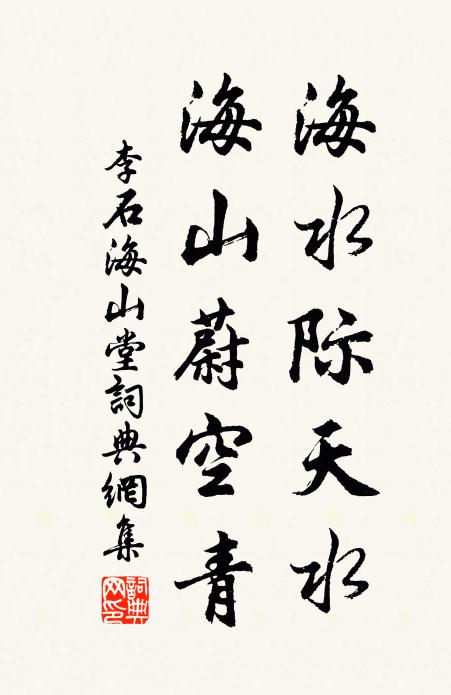 海水际天水
海山蔚空青
李石海山堂詞典網集
詞典網印